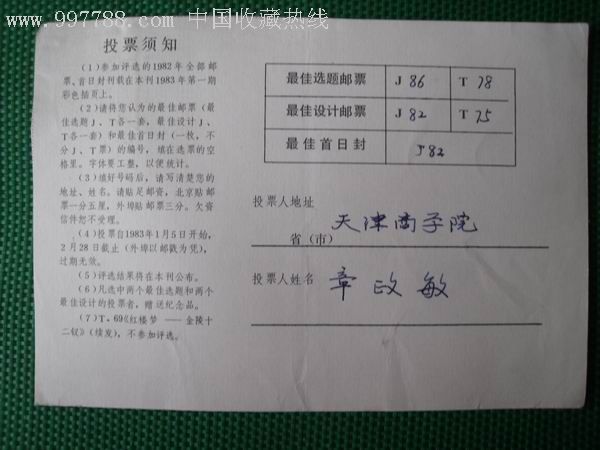 www.997788.com 中国收藏热线
投票须知
(1)参加评选的1982年全部邮
票、首日封刊载在本刊1983年第一期
彩色插页上。
(2)请将您认为的最佳邮票(最
佳选题J、T各一套,最佳设计J、
T各一套)和最佳首日封(一枚,不
分J、T票)的编号,填在选票的空
格里。字体要工整,以便统计。
(3)填好号码后,请写清楚您的
地址、姓名。请贴足邮资,北京贴邮
票一分五厘,外埠贴邮票三分。欠资
信件恕不受理。
(4)投票自1983年1月5日开始,
2月28日截止(外埠以邮戳为凭),
过期无效。
(5)评选结果将在本刊公布。
(6)凡选中两个最佳选题和两个
最佳设计的投票者,赠送纪念品。
(7)T·69《红楼梦——金陵十
二钗》(续发),不参加评选。
最佳选题邮票 J 86 T 78
最佳设计邮票 J 82 T 75
最佳首日封 J82
投票人地址
省(市) 天津商学院
投票人姓名 章政敏